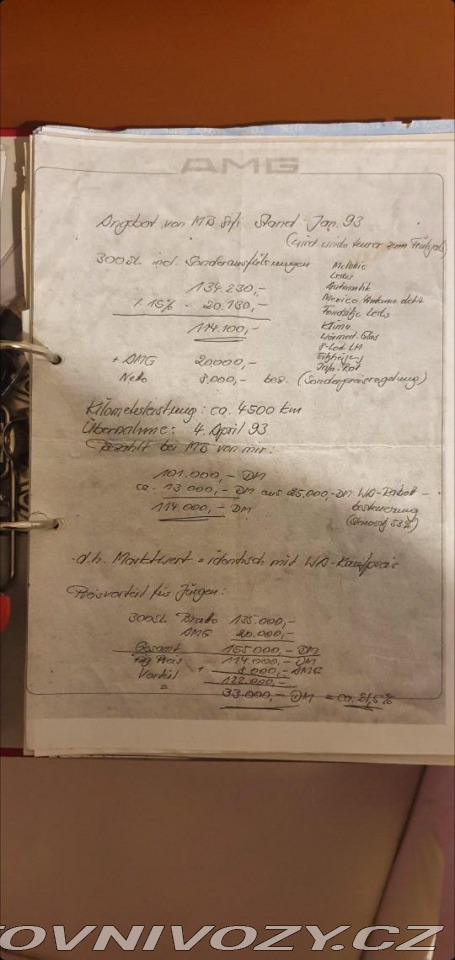 AMG
Angebot von MB Stand Jan. 93
(wird wieder teurer zum Frühjahr)
300SL incl. Sonderausstattungen
Metallic
Leder
Automatik
134.230,-
./. 15% - 20.130,-
114.100,-
Fondsitze Leder
Klima
Wärmed. Glas
8-Loch LM
Sitzheizg
+ AMG 20.000,-
Netto 8.000,- bez. (Sonderpreisregelung)
Kilometerleistung: ca. 4500 km
Übernahme: 4. April 93
Bezahlt bei MB von mir:
101.000,- DM
ca. 13.000,- DM aus 25.000,- DM WA-Rabatt-
besteuerung
114.000,- DM
(Steuersatz 53%)
d.h. Marktwert = identisch mit WA-Kaufpreis
Preisvorteil für Jürgen:
300SL Brutto 135.000,-
AMG 20.000,-
Gesamt 155.000,- DM
Preis 114.000,- DM
Vorteil + 8.000,- AMG
= 122.000,-
33.000,- DM = ca. 21,5%
OVNIVOZY.CZ